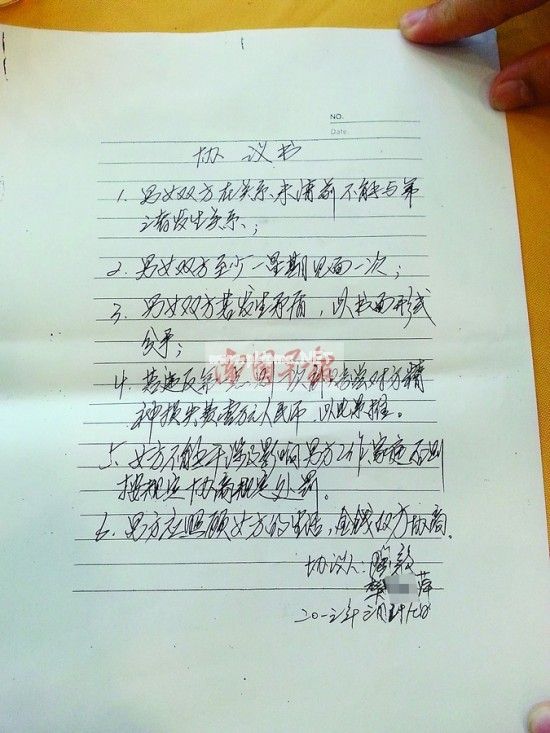 NO.
Date.
协议书
1、男女双方在关系未清前不能与第
三者发生关系；
2、男女双方至少一星期见面一次；
3、男女双方若发生矛盾，以书面形式
分手；
4、若违反第一、 赔偿对方精
神损失费壹万元人民币，以此类推。
5、女方不能干涉影响男方工作家庭否则
按规定协商规定处罚。
6、男方应照顾女方的生活，金钱双方协商。
协议人：
萍
南国早报